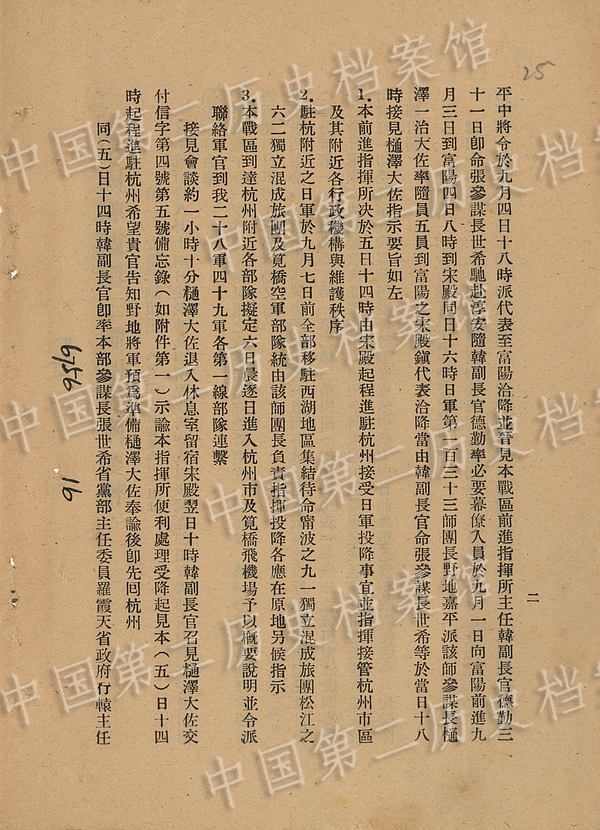 25
二
平中將令於九月四日十八時派代表至富陽洽降並晉見本戰區前進指揮所主任韓副長官德勤三
十一日卽命張參謀長世希馳赴淳安隨韓副長官德勤率必要幕僚人員於九月一日向富陽前進九
月三日到富陽四日八時到宋殿同日十六時日軍第一百三十三師團長野地嘉平派該師參謀長樋
澤一治大佐率隨員五員到富陽之宋殿鎮代表洽降當由韓副長官命張參謀長世希等於當日十八
時接見樋澤大佐指示要旨如左
1.本前進指揮所決於五日十四時由宋殿起程進駐杭州接受日軍投降事宜並指揮接管杭州市區
及其附近各行政機構與維護秩序
2.駐杭附近之日軍於九月七日前全部移駐西湖地區集結待命甯波之九一獨立混成旅團松江之
六二獨立混成旅團及筧橋空軍部隊統由該師團長負責指揮投降各應在原地另候指示
3.本戰區到達杭州附近各部隊擬定六日晨逐日進入杭州市及筧橋飛機場予以概要說明並令派
聯絡軍官到我二十八軍四十九軍各第一線部隊連繫
接見會談約一小時十分樋澤大佐退入休息室留宿宋殿翌日十時韓副長官召見樋澤大佐交
付信字第四號第五號備忘錄(如附件第一)示諭本指揮所便利處理受降起見本(五)日十四
時起程進駐杭州希望貴官告知野地將軍預爲準備樋澤大佐奉諭後卽先回杭州
同(五)日十四時韓副長官卽率本部參謀長張世希省黨部主任委員羅霞天省政府行轅主任
91
中国第二历史档案馆
中国第二历史档案馆
中国第二历史档案馆
中国第二历史档案馆
中国第二历史档案馆
中国第二历史档案馆